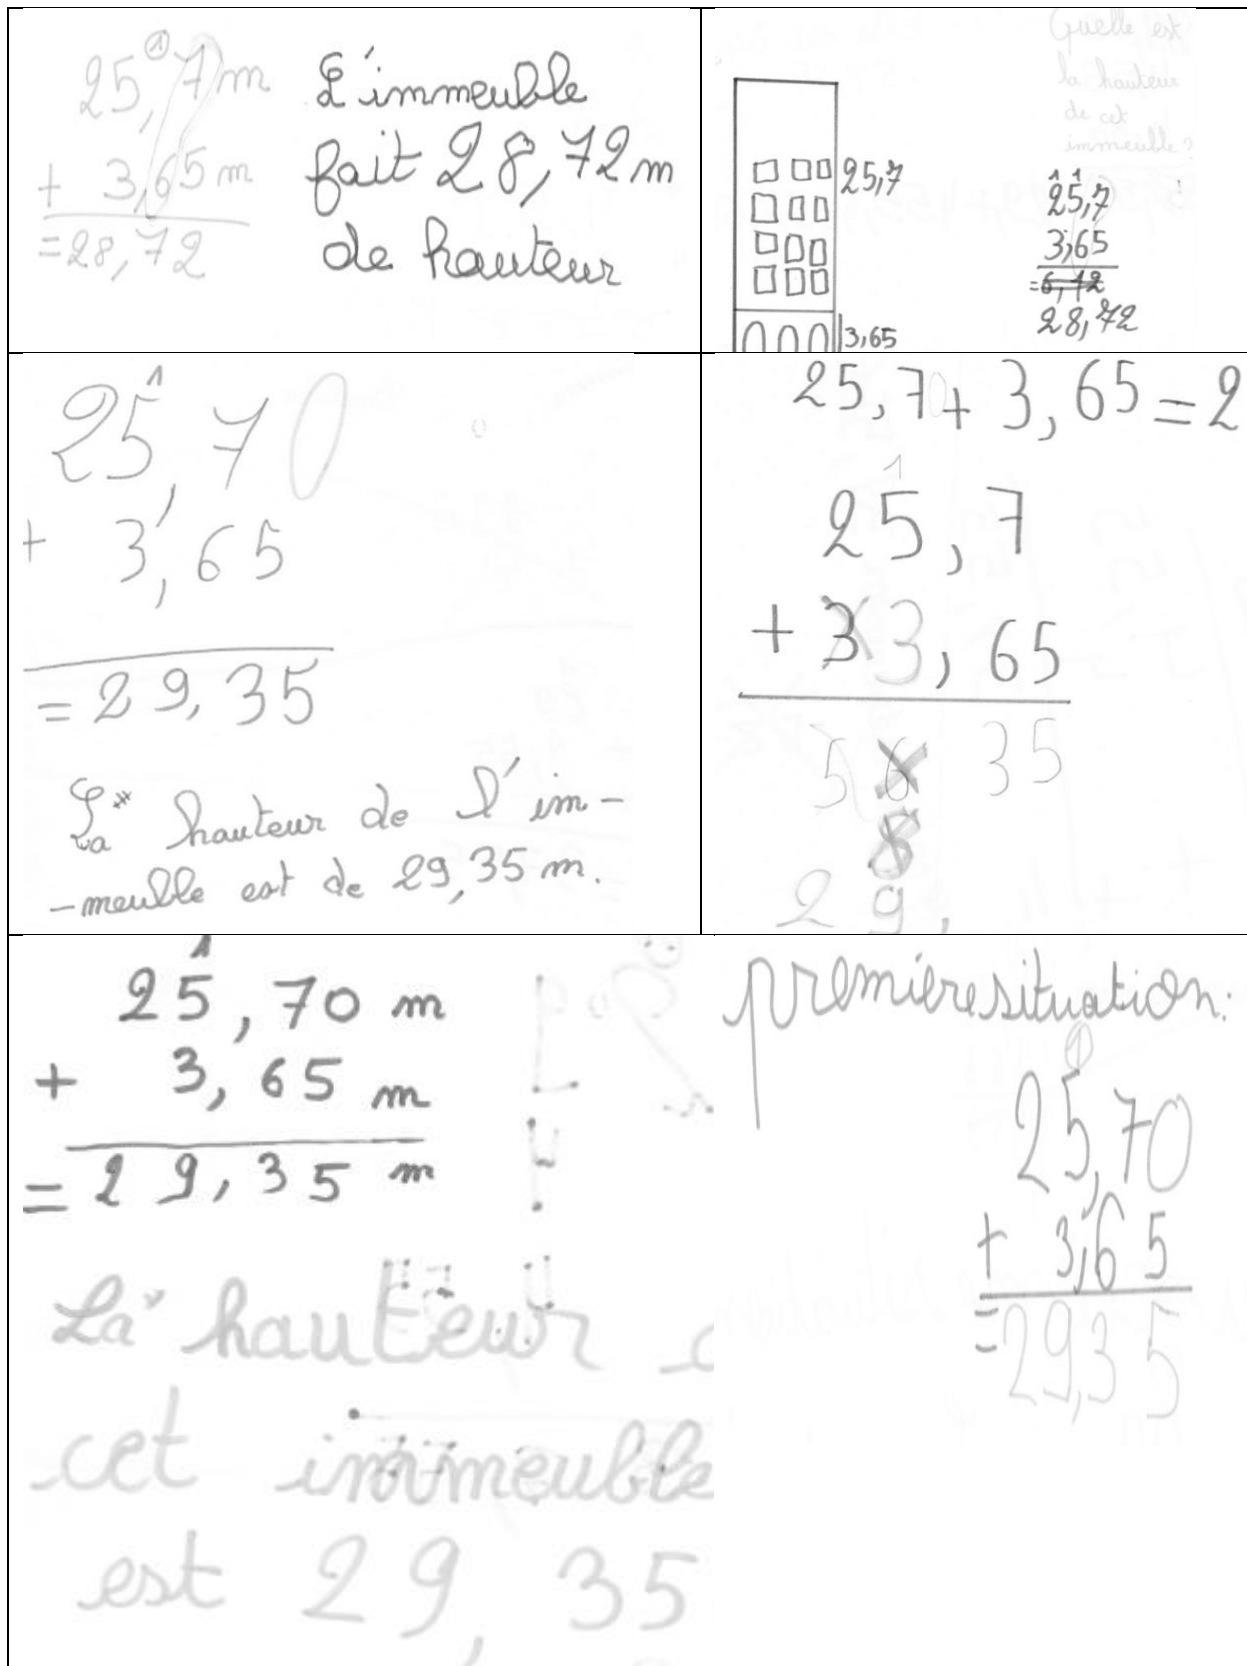 25,7 m
+ 3,65 m
= 28,72
1
L'immeuble
fait 28,72 m
de hauteur
Quelle est
la hauteur
de cet
immeuble ?
25,7
3,65
1 1
25,7
3,65
= 6,12
28,72
1
25,70
+ 3,65
= 29,35
La hauteur de l'im-
-meuble est de 29,35 m.
25,70 + 3,65 = 2
1
25,7
+ 3 3,65
5 6 35
8
2 9,
1
25,70 m
+ 3,65 m
= 29,35 m
La hauteur
cet immeuble
est 29,35
première situation:
1
25,70
+ 3,65
= 29,35